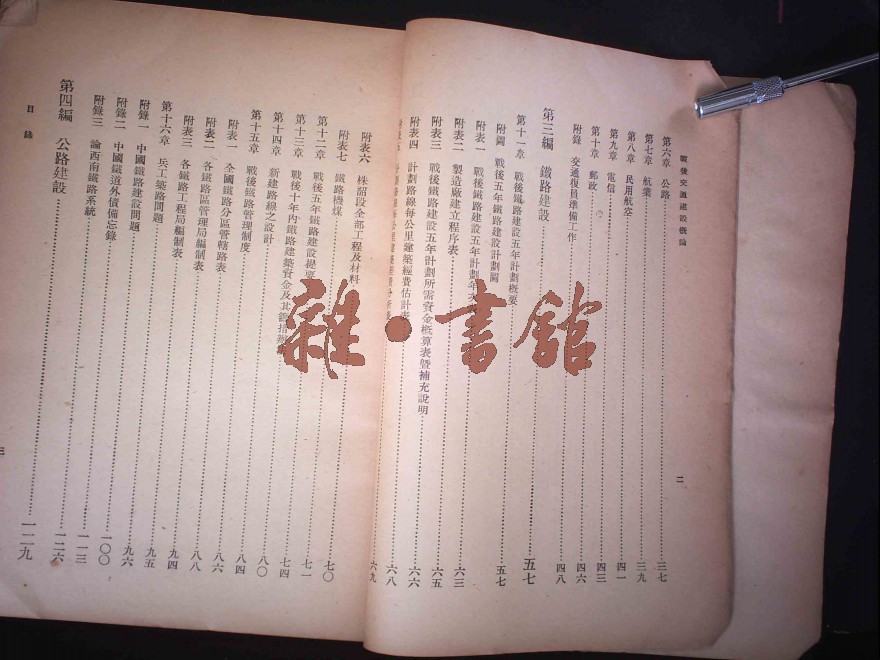 戰後交通建設概論
二
第六章 公路 三七
第七章 航業 三九
第八章 民用航空 四一
第九章 電信 四三
第十章 郵政 四六
附錄 交通復員準備工作 四八
第三編 鐵路建設 五七
第十一章 戰後鐵路建設五年計劃概要 五七
附圖 戰後五年鐵路建設計劃圖
附表一 戰後鐵路建設五年計劃年 六三
附表二 製造廠建立程序表 六五
附表三 戰後鐵路建設五年計劃所需資金概算表暨補充說明 六六
附表四 計劃路線每公里建築經費估計表 六八
六九
附表六 株韶段全部工程及材料 七〇
附表七 鐵路機煤 七一
第十二章 戰後五年鐵路建設提要 七四
第十三章 戰後十年內鐵路建築資金及其籌措 八〇
第十四章 新建路線之設計 八四
第十五章 戰後鐵路管理制度 八六
附表一 全國鐵路分區管轄路表 八八
附表二 各鐵路區管理局編制表 九四
附表三 各鐵路工程局編制表 九五
第十六章 兵工築路問題 九六
附錄一 中國鐵路建設問題 一〇〇
附錄二 中國鐵道外債備忘錄 一一三
附錄三 論西南鐵路系統 一二六
第四編 公路建設 一二九
目錄
三
雜·書館